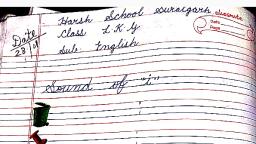 Harsh School Suratgarh classmate
Date
Page
Date Class L K G
23 Sub English
Sound of "i"